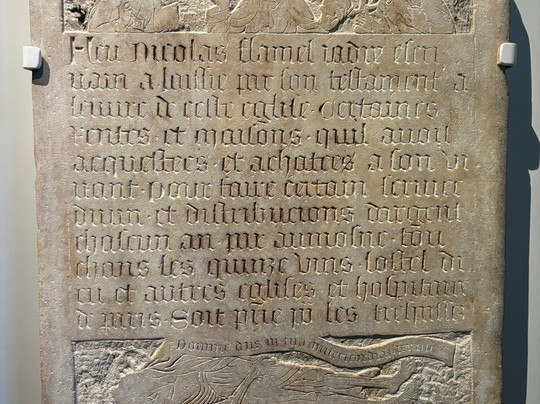 Feu Nicolas flamel iadis escri
uain a laissie par son testament a
leuure de ceste eglise certaines
rentes et maisons quil auoit
acquestees et achatees a son vi
uant pour faire certain seruice
diuin et distribucions dargent
chascun an par aumosne tou
chans les quinze vins lostel di
eu et autres eglises et hospitaux
de paris Soit prie po les trespassez
Domine deus in tua misericordia speraui